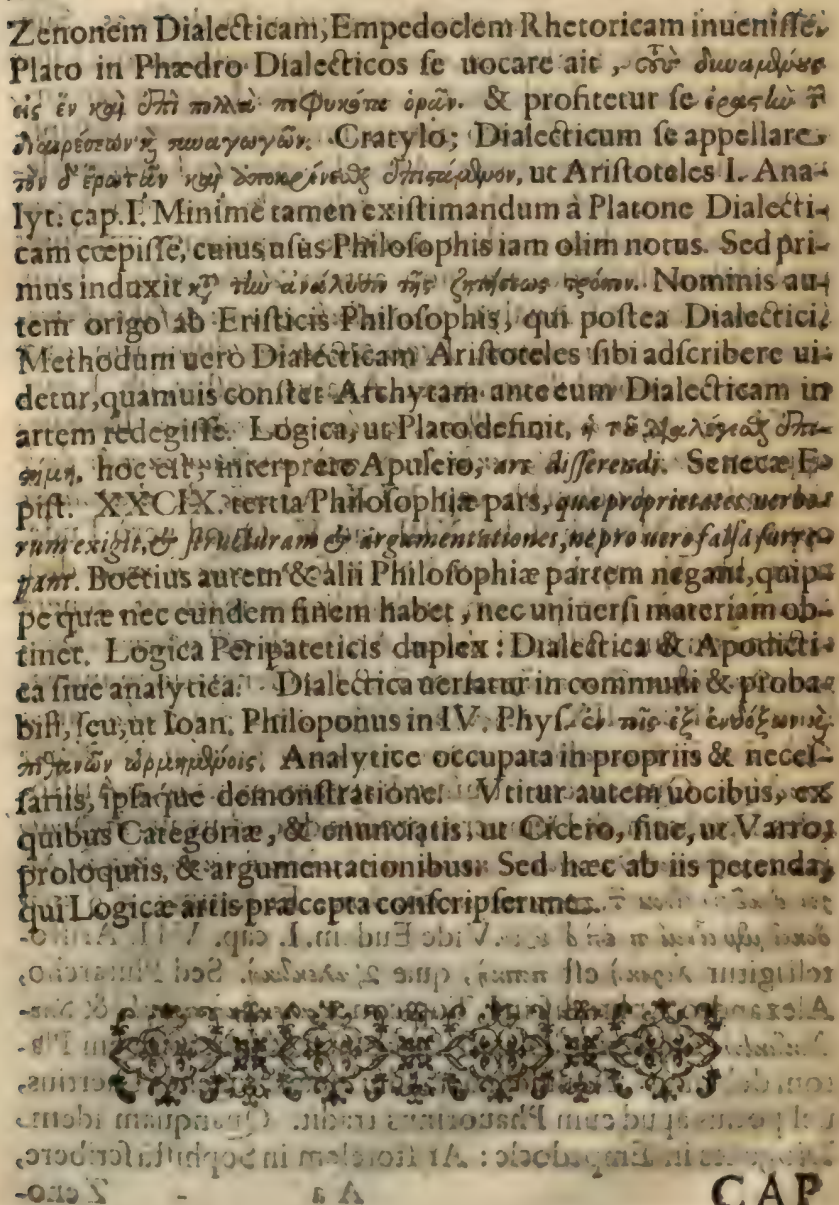 Zenonem Dialecticam, Empedoclem Rhetoricam inueniſſe.
Plato in Phædro Dialecticos ſe uocare ait, τοὺς δυναμένους
εἰς ἓν καὶ ἐπὶ πολλὰ πεφυκότα ὁρᾶν. & profitetur ſe ἐραστὴν τῶν
διαιρέσεων καὶ συναγωγῶν. Cratylo; Dialecticum ſe appellare
τὸν δ' ἐρωτᾶν καὶ ἀποκρίνεσθαι ἐπιστάμενον, ut Ariſtoteles I. Ana-
lyt. cap. I. Minimè tamen exiſtimandum à Platone Dialecti-
cam cœpiſſe, cuius uſus Philoſophis iam olim notus. Sed pri-
mus induxit κατὰ τὴν ἀνάλυσιν τῆς ζητήσεως τρόπον. Nominis au-
tem origo ab Eriſticis Philoſophis, qui poſtea Dialectici.
Methodum uerò Dialecticam Ariſtoteles ſibi adſcribere ui-
detur, quamuis conſtet Archytam ante eum Dialecticam in
artem redegiſſe. Logica, ut Plato definit, ἡ τοῦ διαλέγεσθαι ἐπι-
στήμη, hoc eſt, interprete Apuleio, ars diſſerendi. Senecæ E-
piſt. XXCIX. tertia Philoſophiæ pars, quæ proprietates uerbo-
rum exigit, & ſtructuram & argumentationes, ne pro uero falſa ſurre-
pant. Boëtius autem & alii Philoſophiæ partem negant, quip-
pe quæ nec eundem finem habet, nec uniuerſi materiam ob-
tinet. Logica Peripateticis duplex: Dialectica & Apodicti-
ca ſiue analytica. Dialectica uerſatur in communi & proba-
bili, ſeu, ut Ioan. Philoponus in IV. Phyſ. ἐν τοῖς ἐξ ἐνδόξων καὶ
πιθανῶν ὡρμημένοις. Analytice occupata in propriis & neceſ-
ſariis, ipſaque demonſtratione. Vtitur autem uocibus, ex
quibus Categoriæ, & enunciatis, ut Cicero, ſiue, ut Varro,
proloquiis, & argumentationibus. Sed hæc ab iis petenda,
qui Logicæ artis præcepta conſcripſerunt.
CAP